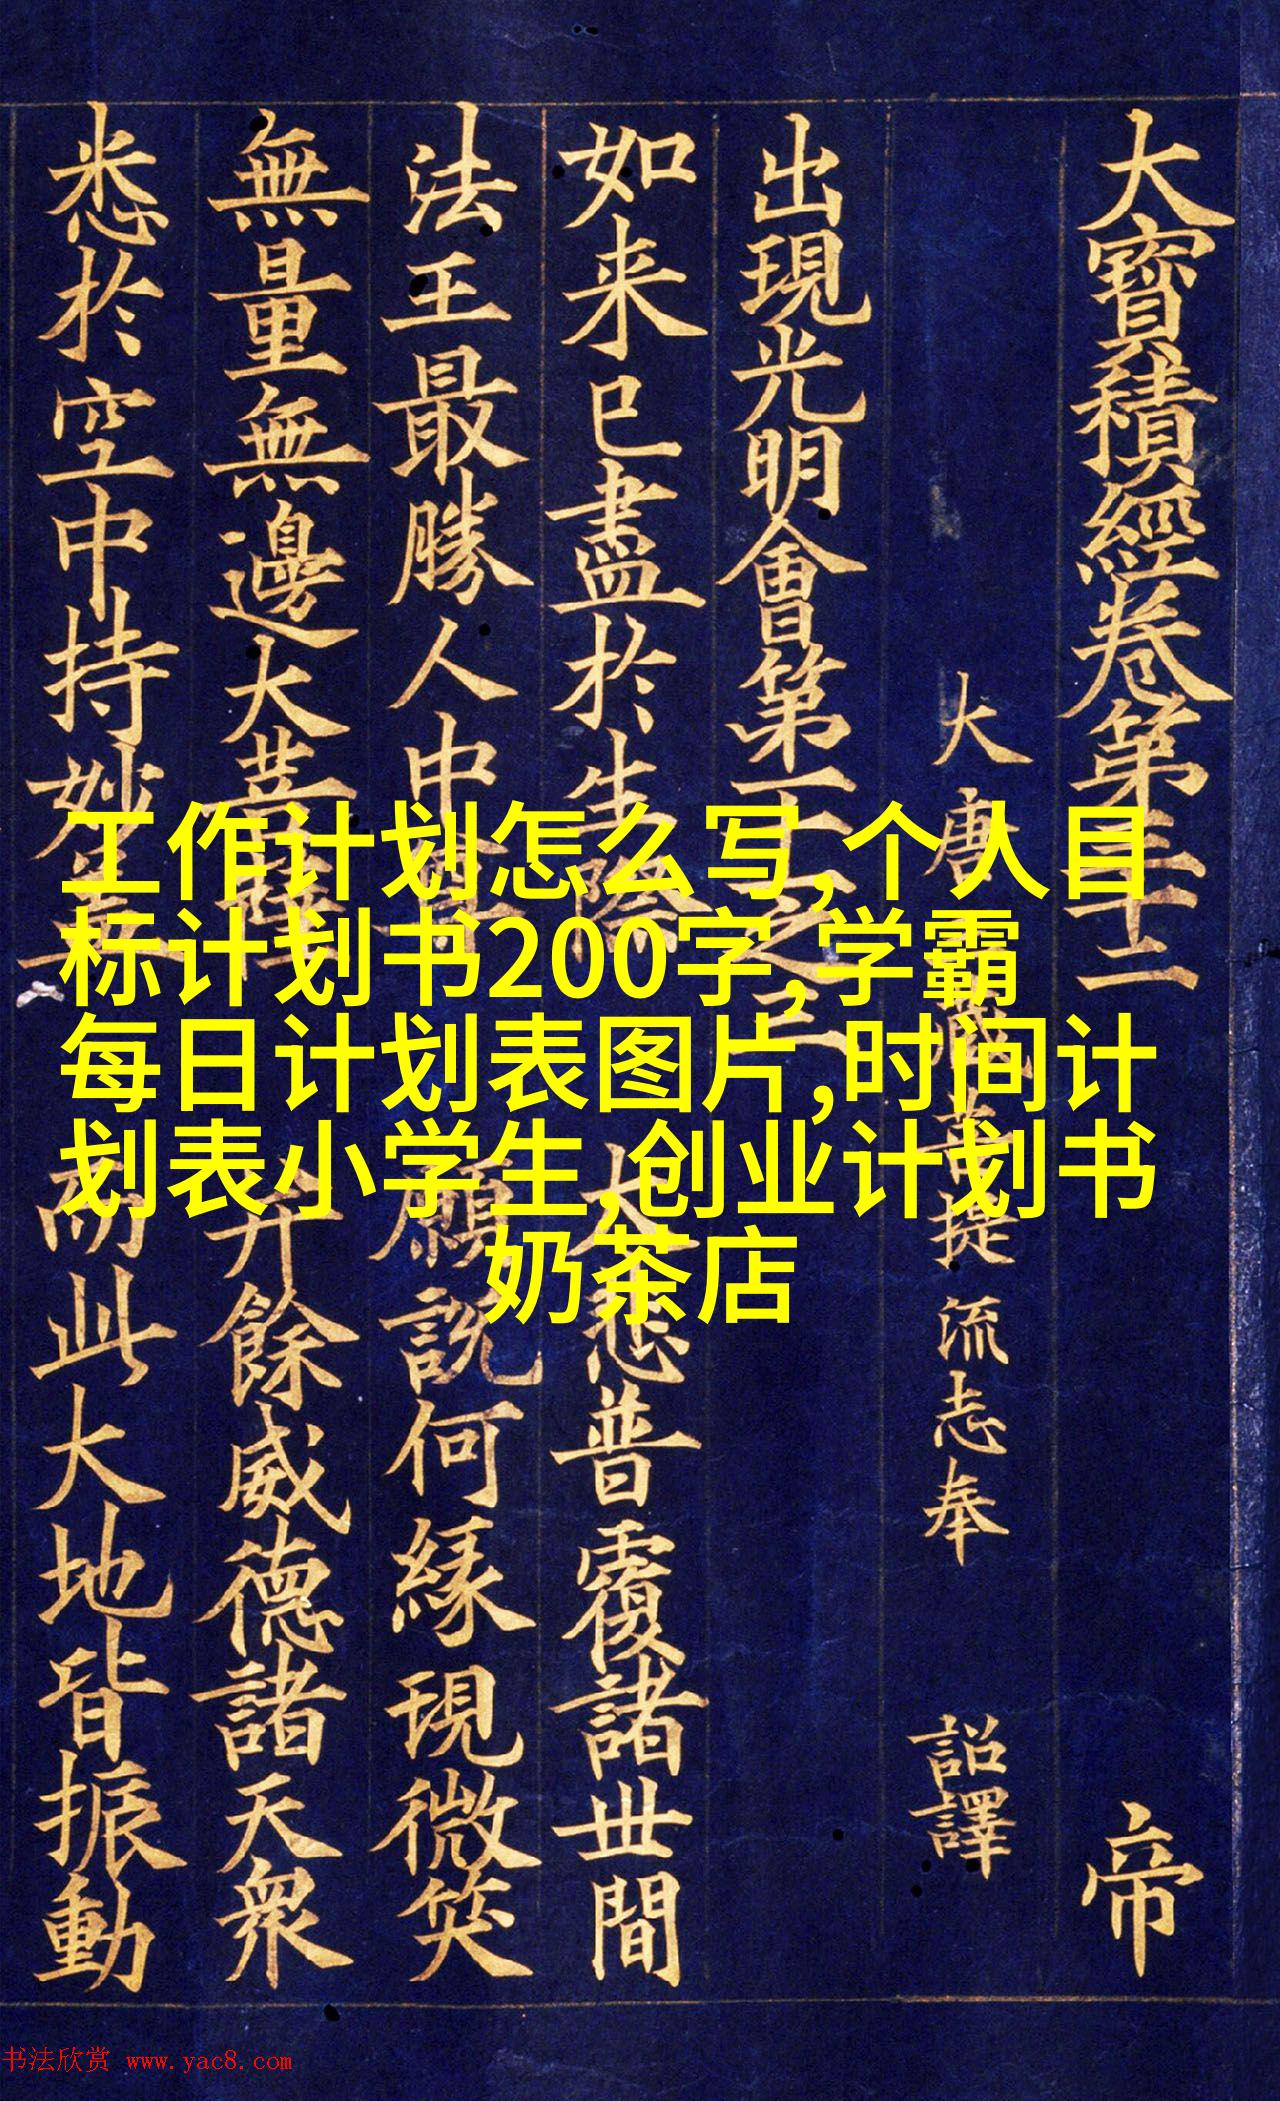 大寶積經卷第三十二 帝
大唐三藏菩提流志奉 詔譯
出現光明會第十一之三
如来已盡於生際 大悲普覆諸世間
法王最勝人中尊 願說何緣現微笑
無量無邊大菩薩 并餘威德諸天衆
悉於空中持妙蓋 而此大地皆振動
工作计划怎么写,个人目
标计划书200字,学霸
每日计划表图片,时间计
划表小学生,创业计划书
奶茶店
书法欣赏 www.yac8.com